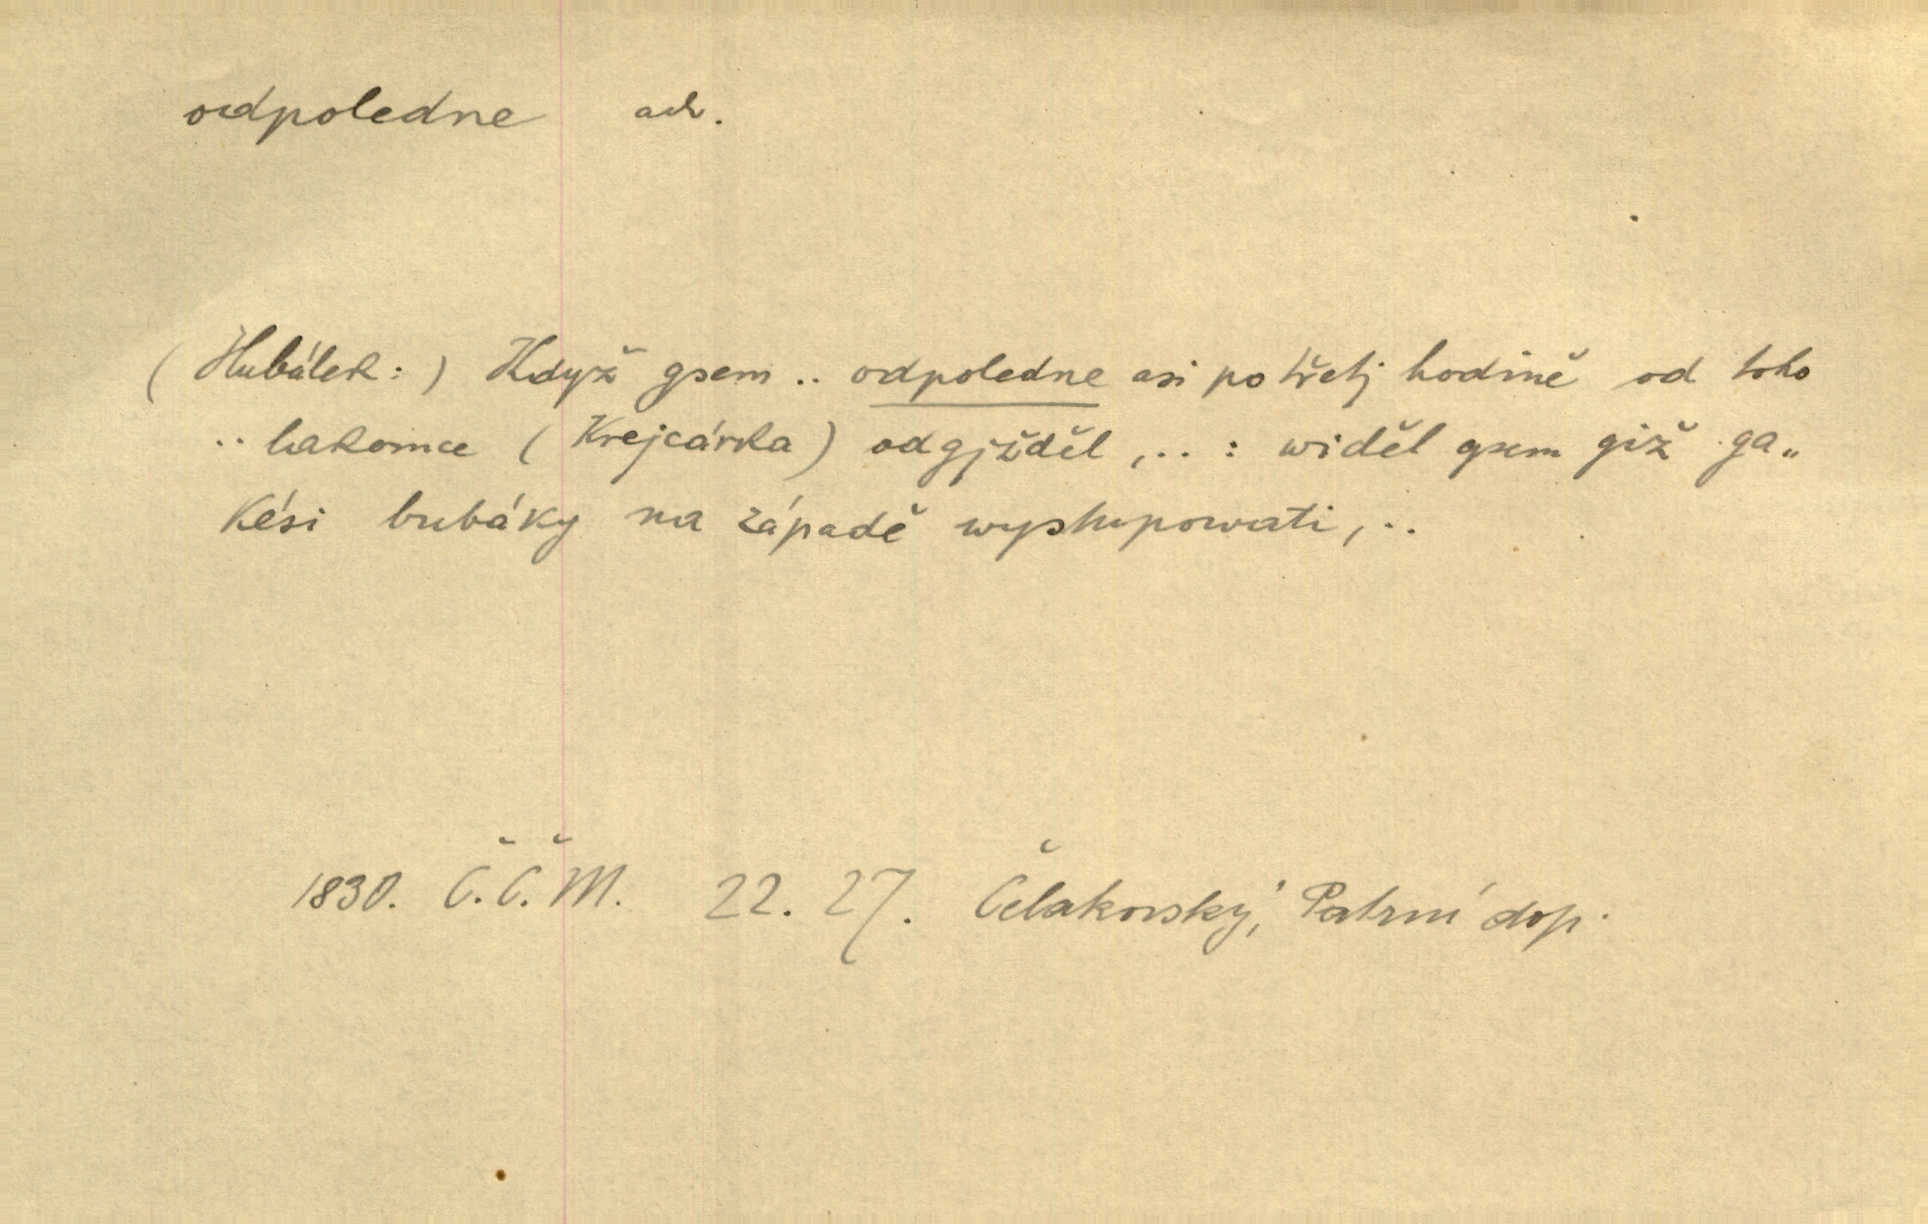 odpoledne adv.
(Hubálek:) Když gsem .. odpoledne asi po třetj hodině od toho
.. lakomce (Krejcárka) odgjžděl, .. : widěl gsem giž ga„
kési bubáky na západě wystupowati, ..
1830. Č.Č.M. 22. 27. Čelakovský, Patrní dop.